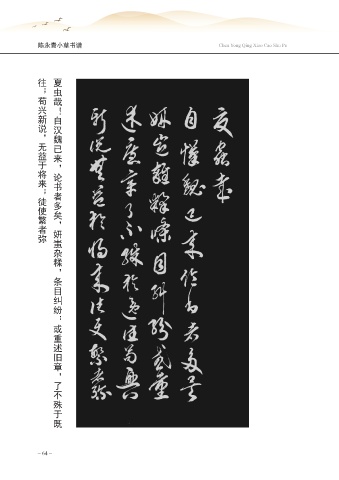 陈永青小草书谱
Chen Yong Qing Xiao Cao Shu Pu
夏虫哉！自汉魏已来，论书者多矣，妍蚩杂糅，条目纠纷：或重述旧章，了不殊于既
往；苟兴新说，无益于将来；徒使繁者弥
夏虫哉
自汉魏已来论书者多矣
妍蚩杂糅条目纠纷或重
述旧章了不殊于既往苟兴
新说无益于将来徒使繁者弥
- 64 -